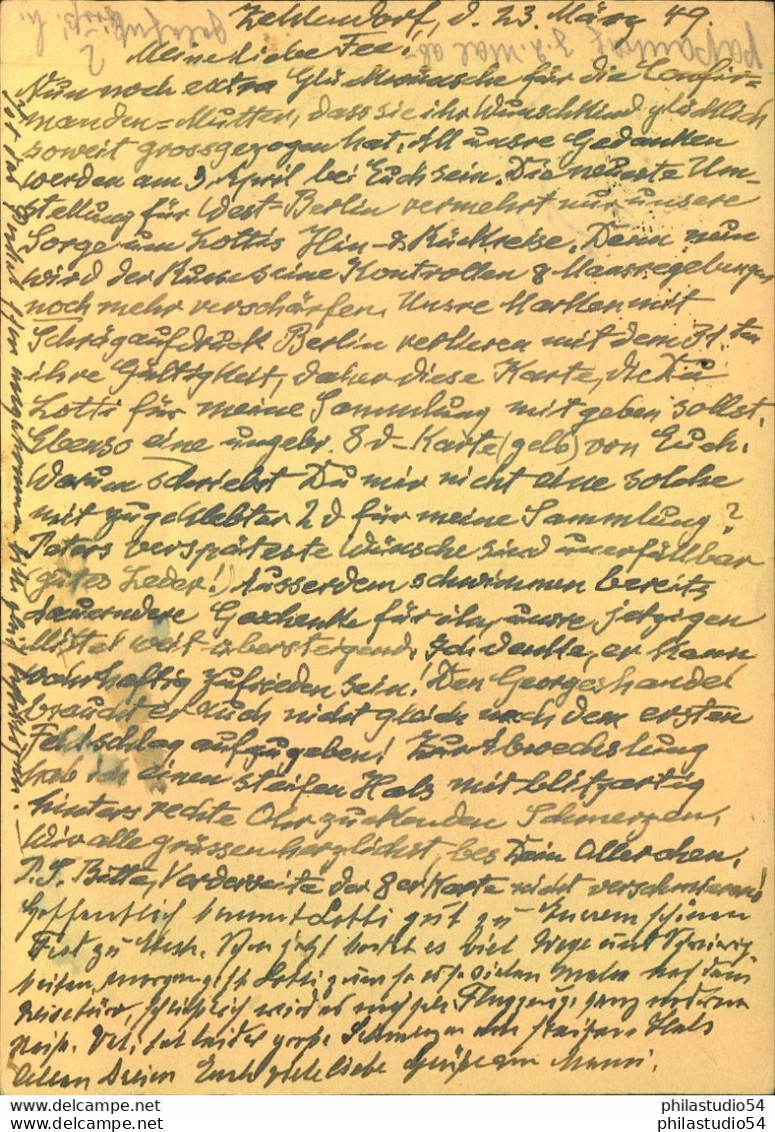 Zehlendorf, d. 23. März 49.
Meine liebe Fee!
Nun noch extra Glückwünsche für die Confir=
manden=Mutter, dass sie ihr Wunschkind glücklich
soweit grossgezogen hat. All unsre Gedanken
werden am 3. April bei Euch sein. Die neueste Um-
stellung für West=Berlin vermehrt nur unsere
Sorge um Lottis Hin- & Rückreise. Denn nun
wird der Russe seine Kontrollen & Massregelungen
noch mehr verschärfen. Unsre Marken mit
Schrägaufdruck Berlin verlieren mit dem 31. ten
ihre Gültigkeit, daher diese Karte, die Du
Lotti für meine Sammlung mitgeben sollst.
Ebenso eine ungebr. 8 d-Karte (gelb) von Euch.
Warum schriebst Du mir nicht eine solche
mit zugeklebter 2 d für meine Sammlung?
Peters verspätete Wünsche sind unerfüllbar
(gutes Leder!) Ausserdem schwimmen bereits
dauerndere Geschenke für ihn, unsre jetzigen
Mittel weit übersteigend. Ich denke, er kann
wahrhaftig zufrieden sein! Den Georgeshandel
braucht er auch nicht gleich nach dem ersten
Fehlschlag aufzugeben! Zur Abwechslung
hab ich einen steifen Hals mit blitzartig
hinters rechte Ohr zuckenden Schmerzen.
Wir alle grüssen herzlichst, bes Dein Allerchen.
P.S. Bitte, Vorderseite der 8er Karte nicht verschmieren!
Hoffentlich kommt Lotti gut zu Eurem schönen
Fest zu Euch. Schon jetzt kostet es viel Wege und Schwierig-
keiten, morgen geht Lotti zum so vielten Male auf das
Reisebüro, schließlich wird es noch per Flugzeug, ganz moderne
Reise. Vati hat leider große Schmerzen am steifen Hals
Allen Dreien Euch viele liebe Grüße von Mutti.
philastudio54
philastudio54